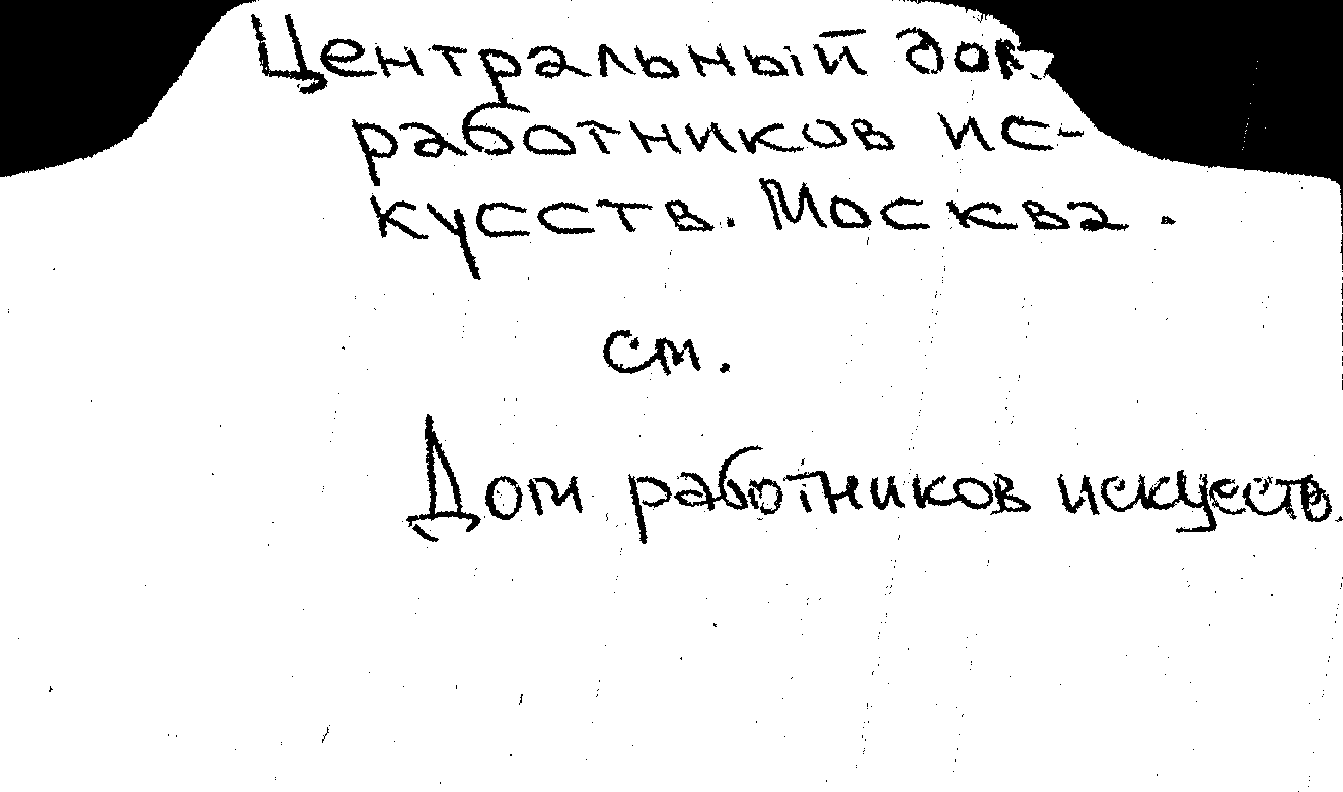 Центральный дом
работников ис-
кусств. Москва.
см.
Дом работников искусств.